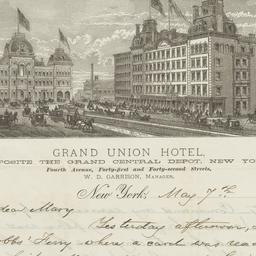 GRAND UNION HOTEL,
POSITE THE GRAND CENTRAL DEPOT, NEW YO
Fourth Avenue, Forty-first and Forty-second Streets,
W. D. GARRISON, MANAGER,
New York, May 7th
dear Mary
Yesterday afternoon,
obbs' Ferry where a card was rea